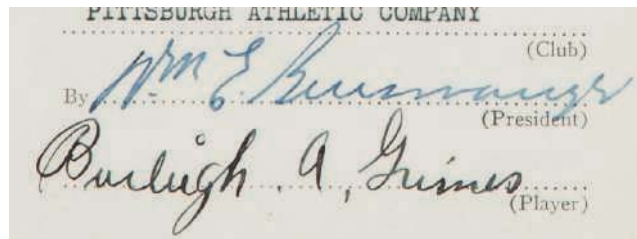 PITTSBURGH ATHLETIC COMPANY
(Club)
By Wm E. Benswanger
(President)
Burleigh A. Grimes
(Player)